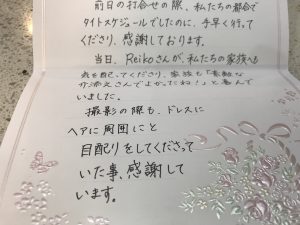 前日の打合せの際、私たちの都合で
タイトスケジュールでしたのに、手早く行って
くださり、感謝しております。
当日、Reikoさんが、私たちの家族へも
気を配ってくださり、家族も「素敵な
介添えさんでよかったね！」と喜んで
いました。
撮影の際も、ドレスに
ヘアに周囲にと
目配りをしてくださって
いた事、感謝して
います。